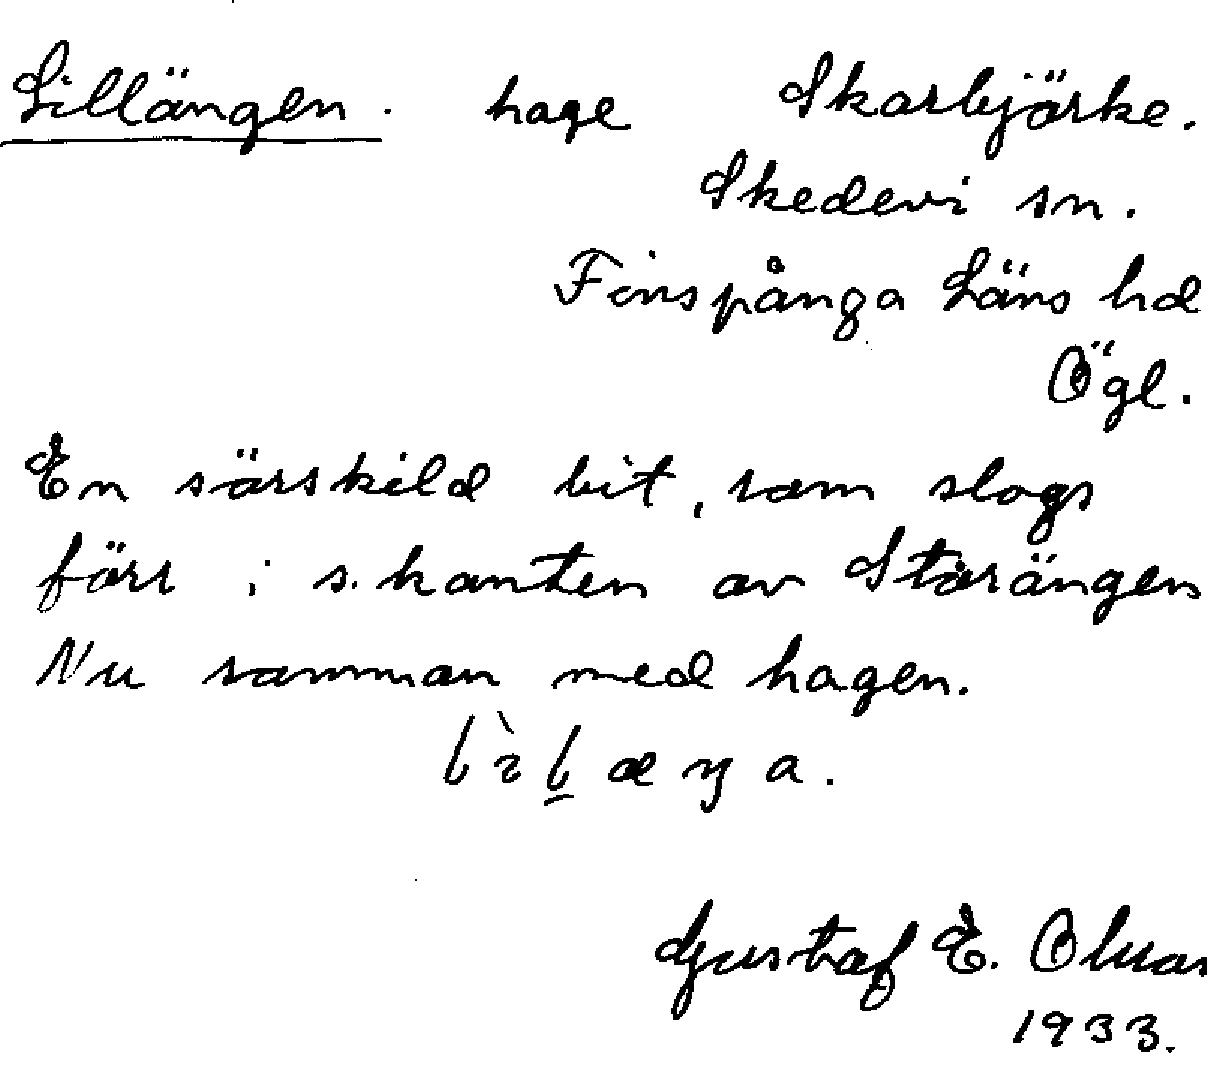 Lillängen. hage Skarbjärke.
Skedevi sn.
Finspånga Läns hd
Ögl.
En särskild bit, som slogs
förr i s. kanten av Storängen
Nu samman med hagen.
Gustaf E.
1933.